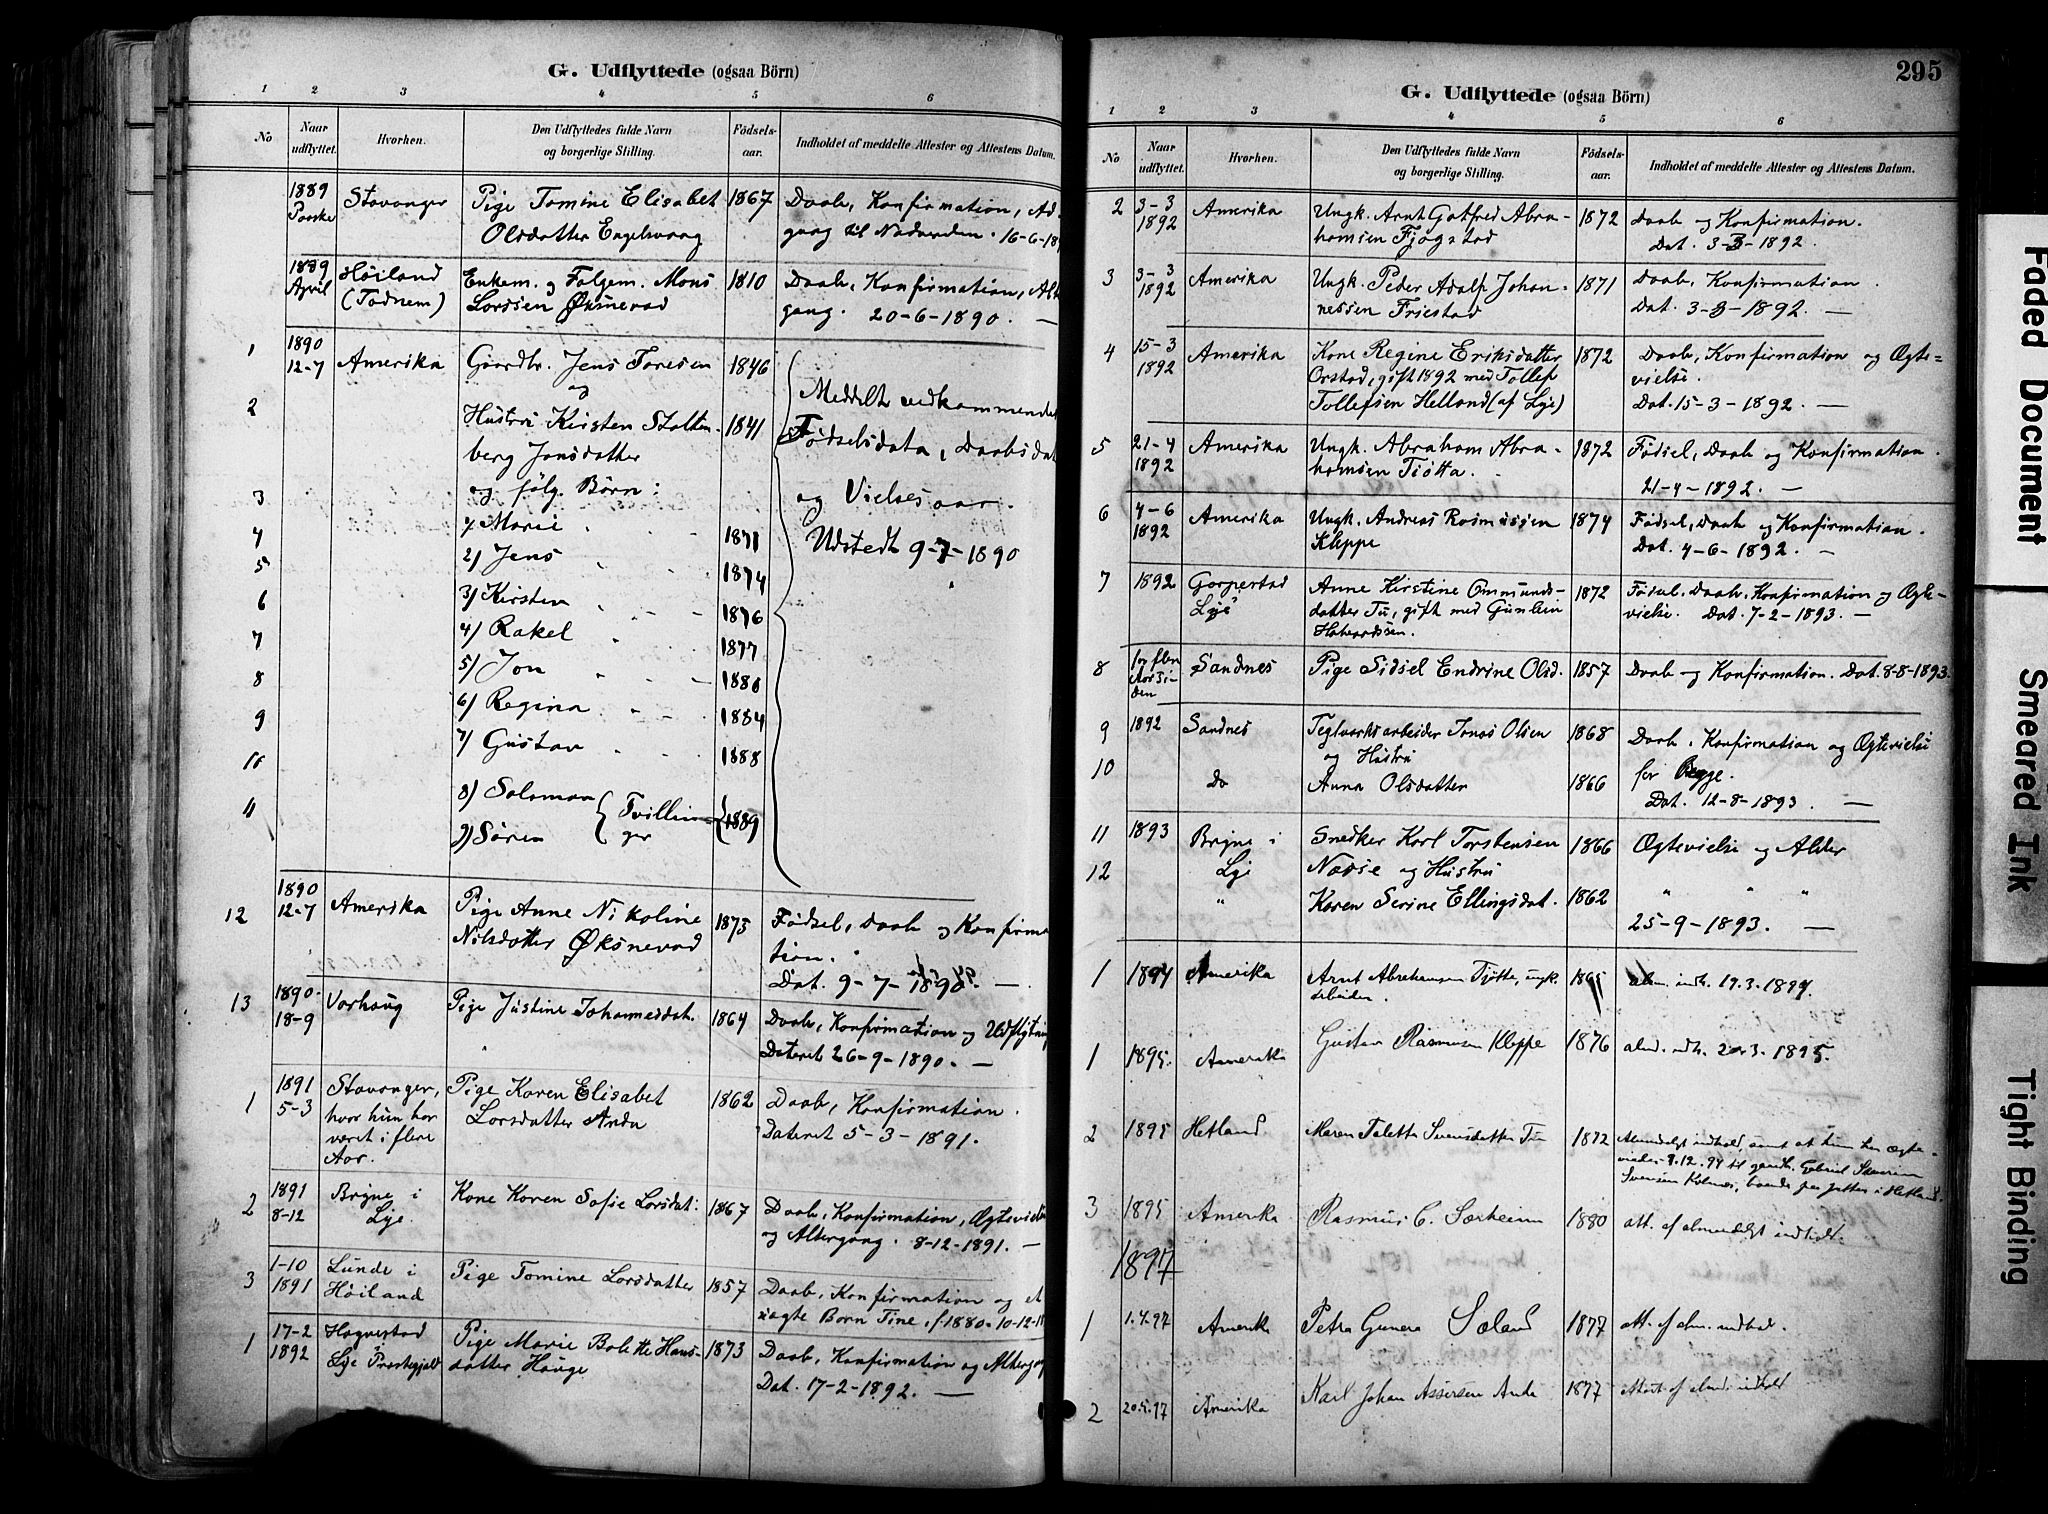 G. Udflyttede (ogsaa Börn)
1 2 3 4 5 6
No Naar udflyttet. Hvorhen. Den Udflyttedes fulde Navn og borgerlige Stilling. Fødsels-aar. Indholdet af meddelte Attester og Attestens Datum.
1889 Stavanger Pige Tomine Elisabet 1867 Daab, Konfirmation, Ad-
Paaske Olsdatter Engelsvaag gang til Nadverden. 16-6-
1889 Høiland Enkem. og Folgem. Mons 1810 Daab, Konfirmation, Alt
April (Todnem) Larssen Øksnevad gang. 20-6-1890. —
1 1890 12-7 Amerika Gaardbr. Jens Toresen 1846
og Meddelt vedkommende
2 Hustru Kirsten Stolten- 1841 Fødselsdata, Daabsdat
berg Jonsdatter
3 og følg. Børn: og Vielsesaar.
4 1) Marie 1871 Udstedt 9-7-1890
5 2) Jens 1874
6 3) Kirsten 1876
7 4) Rakel 1877
8 5) Jon 1880
9 6) Regina 1884
10 7) Gustav 1888
11 8) Salomon Tvillin- 1889
9) Søren ger
12 1890 12-7 Amerika Pige Anne Nikoline 1875 Fødsel, Daab og Konfirma
Nilsdatter Øksnevad tion.
Dat. 9-7-1890. —
13 1890 18-9 Varhaug Pige Justine Johannesdat. 1864 Daab, Konfirmation og Udflytning
Dateret 26-9-1890. —
1 1891 Stavanger, Pige Karen Elisabet 1862 Daab, Konfirmation.
5-3 hvor hun har Larsdatter Anda Dateret 5-3-1891.
været i flere
Aar.
2 1891 Bryne i Kone Karen Sofie Larsdat. 1867 Daab, Konfirmation, Ægtevielse
8-12 Lye. og Altergang. 8-12-1891. —
3 1-10 Lunde i Pige Tomine Larsdatter 1857 Daab, Konfirmation og et
1891 Høiland uægte Barn Tine, f. 1880. 10-12-
1 17-2 Haavestad Pige Marie Bolette Hans- 1873 Daab, Konfirmation og Altergang
1892 Lye Prestegjeld datter Hauge Dat. 17-2-1892. —
295
G. Udflyttede (ogsaa Börn)
1 2 3 4 5 6
No Naar udflyttet. Hvorhen. Den Udflyttedes fulde Navn og borgerlige Stilling. Fødsels-aar. Indholdet af meddelte Attester og Attestens Datum.
2 3-3 Amerika Ungk. Arnt Gotfred Abra- 1872 Daab og Konfirmation.
1892 hamsen Fjogstad Dat. 3-3-1892.
3 3-3 Amerika Ungk. Peder Adolf Johan- 1871 Daab, Konfirmation.
1892 nessen Friestad Dat. 3-3-1892. —
4 15-3 Amerika Kone Regine Eriksdatter 1872 Daab, Konfirmation og Ægte-
1892 Orstad, gift 1892 med Tollef vielse.
Tollefsen Helland (af Lye) Dat. 15-3-1892. —
5 21-4 Amerika Ungk. Abraham Abra- 1872 Fødsel, Daab og Konfirmation.
1892 hamsen Tjøtta. 21-4-1892. —
6 4-6 Amerika Ungk. Andreas Rasmussen 1874 Fødsel, Daab og Konfirmation.
1892 Kleppe Dat. 4-6-1892. —
7 1892 Anne Kirstine Ommunds- 1872 Fødsel, Daab, Konfirmation og Ægte-
Lye datter Tu, gift med vielse. Dat. 7-2-1893. —
8 Sandnes Pige Sidsel Endrine Olsd. 1857 Daab og Konfirmation. Dat. 8-8-1893.
9 1892 Sandnes Teglværksarbeider Jonas Olsen 1868 Daab, Konfirmation og Ægtevielse
og Hustru
10 Do Anna Olsdatter 1866 for Begge.
Dat. 12-8-1893. —
11 1893 Bryne i Snedker Karl Torstensen 1866 Ægtevielse og Alder
12 Lye og Hustru
" Karen Serine Ellingsdat. 1862 " " "
25-9-1893. —
1 1894 Amerika Arnt Abrahamsen Tjøtta, ungk. 1865 alm. indh. 19.3.1894.
arbeider.
1 1895. Amerika Gustav Rasmussen Kleppe 1876 alm. indh. 20.3.1895.
2 1895 Hetland Maren Talette Svensdatter Tu 1872 Almindeligt indhold, samt at hun har ægte-
3 1895 Amerika Rasmus C. Særheim 1880 att. af almindeligt indhold.
1897
1 1.4.97 Amerika Petra Gunera Sæland 1877 att. af alm. indhold.
2 Amerika Karl Johan Assersen Anda 1877 Attest af alm. indhold
Faded Document
Smeared Ink
Tight Binding